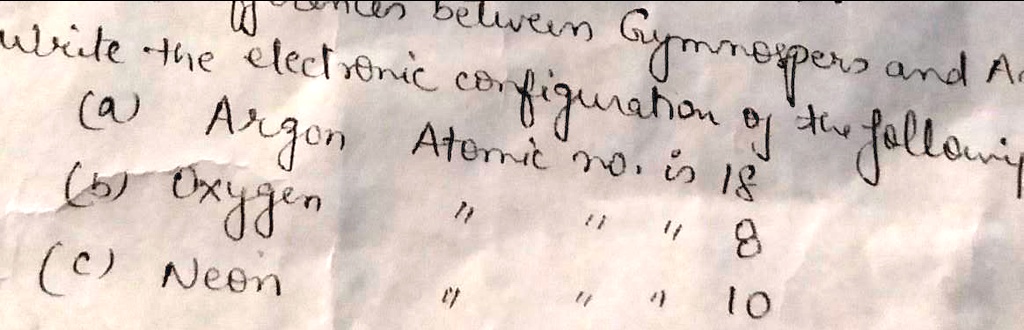 between Gymnospers and
write the electronic configuration of the following
(a) Argon Atomic no. is 18
(b) Oxygen " " " 8
(c) Neon " " " 10